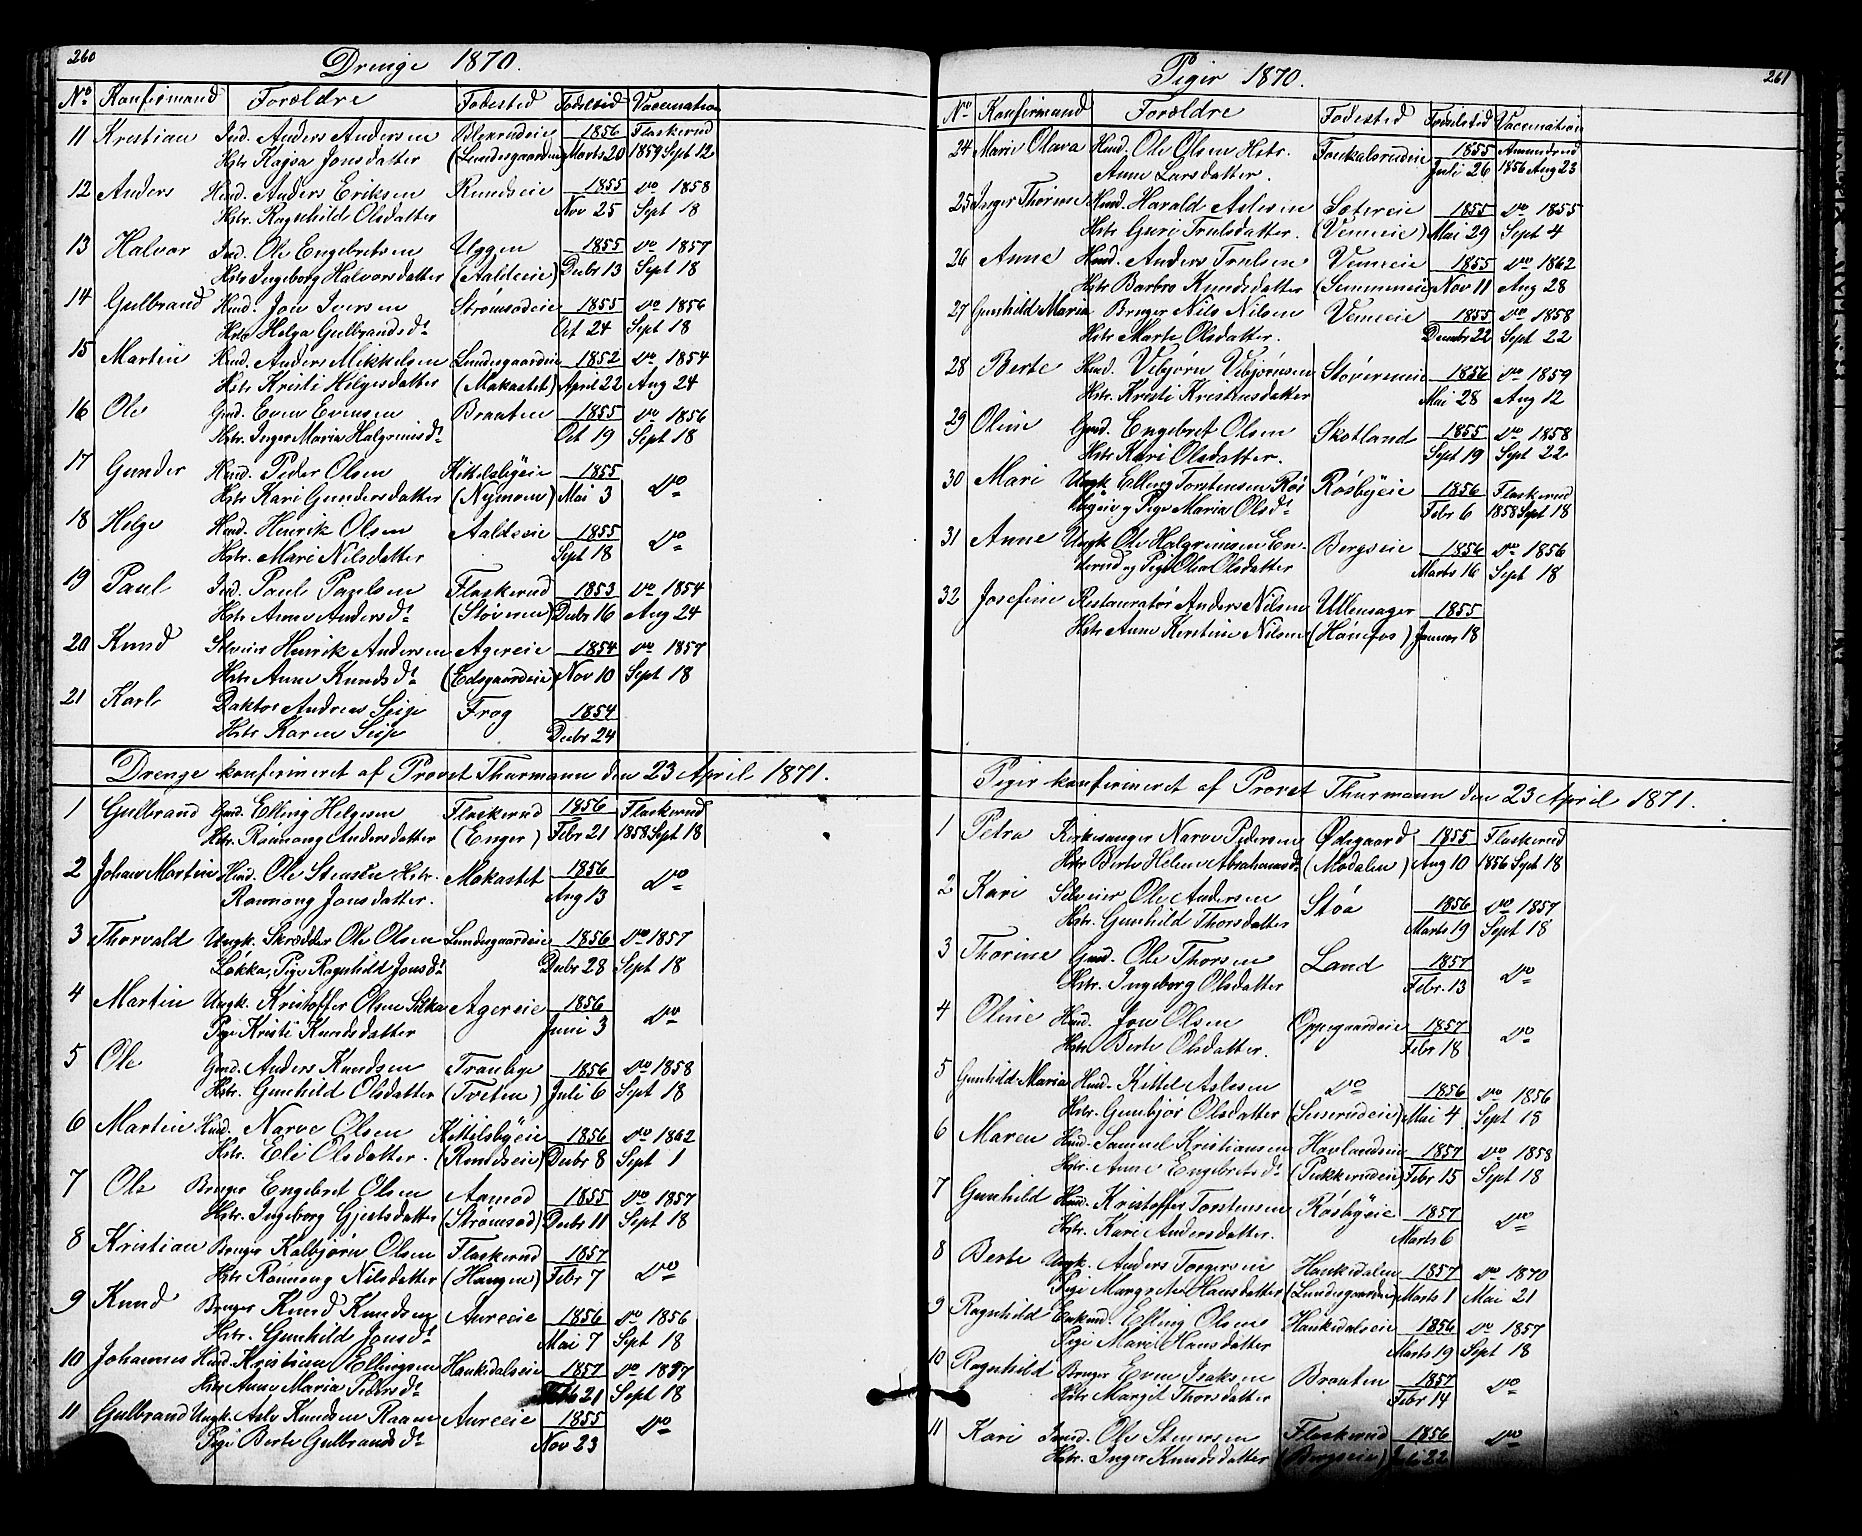 260
Drenge 1870.
No Konfirmand Forældre Fødested Fødselstid Vaccination
11 Kristian Ind. Anders Andersen 1856 Flaskerud
Hstr. Kajsa Jonsdatter (Lundesgaarden) Marts 20 1859 Sept 12
12 Anders Hmd. Anders Eriksen Rundseie 1855 do 1858
Hstr. Ragnhild Olsdatter Nov 25 Sept 18
13 Halvor Ind. Ole Engebretsen Uggen 1855 do 1857
Hstr. Ingeborg Halvorsdatter (Aaldseie) Decbr 13 Sept 18
14 Gulbrand Hmd. Jon Iversen Strømsødeie 1855 do 1856
Hstr. Helga Gulbrandsdr Oct 24 Sept 18
15 Martin Hmd. Anders Mikkelsen Lundesgaardeie 1852 do 1854
Hstr. Kristi Helgesdatter (Makastet) April 22 Aug 24
16 Ole Gmd. Even Evensen Braaten 1855 do 1856
Hstr. Inger Maria Halgrimsdr Oct 19 Sept 18
17 Gunder Hmd. Peder Olsen Kittelsbyeie 1855
Hstr. Kari Gundersdatter (Nymoen) Mai 3 do
18 Helge Hmd. Henrik Olsen Aaldseie 1855
Hstr. Mari Nilsdatter Sept 18 do
19 Paul Ind. Paul Paulsen Flaskerud 1853 do 1854
Hstr. Anne Andersdr (Støveren) Decbr 16 Aug 24
20 Knud Selveier Henrik Andersen Agereie 1854 do 1857
Hstr. Anne Knudsdr (Edsgaardeie) Nov 10 Sept 18
21 Karl Doktor Andreas Seip Frog 1854
Hstr. Karen Seip Decbr 24
Drenge konfirmeret af Provst Thurmann den 23 April 1871.
1 Gulbrand Gmd. Elling Helgesen Flaskerud 1856 Flaskerud
Hstr. Rønnong Andersdatter (Enger) Febr 21 1858 Sept 18
2 Johan Martin Hmd. Ole Hstr. Makastet 1856
Rønnong Jonsdatter. Aug 13 do
3 Thorvald Ungk. Skrædder Ole Olsen Lundesgaardeie 1856 do 1857
Løkka, Pige Ragnhild Jonsdr Decbr 28 Sept 18
4 Martin Ungk. Kristoffer Olsen Agereie 1856
Pige Kristi Knudsdatter Juni 3 do
5 Ole Gmd. Anders Knudsen Tranbye 1856 do 1858
Hstr. Gunhild Olsdatter (Tveten) Juli 6 Sept 18
6 Martin Hmd. Narve Olsen Kittilsbyeie 1856 do 1862
Hstr. Eli Olsdatter. (Rundseie) Decbr 8 Sept 1
7 Ole Bruger Engebret Olsen Aamod 1855 do 1857
Hstr. Ingeborg Gjertsdatter (Strømsød) Decbr 11 Sept 18
8 Kristian Bruger Kolbjørn Olsen Flaskerud 1857
Hstr. Rønnong Nilsdatter (Haugen) Febr 7 do
9 Knud Bruger Knud Knudsen Aureeie 1856 do 1856
Hstr. Gunhild Jonsdr Mai 7 Sept 18
10 Johannes Hmd. Kristian Ellingsen Hanksdalseie 1857 do 1857
Hstr. Anne Maria Pedersdr 21 Sept 18
11 Gulbrand Ungk. Asle Knudsen Raaen Aureeie 1855
Pige Berte Gulbrandsdr Nov 23 do
261
Piger 1870.
No Konfirmand Forældre Fødested Fødselstid Vaccination
24 Marie Olava Hmd. Ole Olsen Hstr. 1855 Aamundrud
Anne Larsdatter. Juli 26 1856 Aug 23
25 Inger Thorine Hmd. Harald Aslesen Sætereie 1855 do 1855
Hstr. Guri Trulsdatter. (Vemeeie) Mai 29 Sept 4
26 Anne Hmd. Anders Trulsen Vemeeie 1855 do 1862
Hstr. Barbro Knudsdatter (Semmeneie) Nov 11 Aug 28
27 Gunhild Maria Bruger Nils Nilsen Vemeeie 1855 do 1858
Hstr. Marte Olsdatter. Decmbr 22 Sept 22
28 Berte Hmd. Vebjørn Vebjørnsen Støvereneie 1856 do 1859
Hstr. Kristi Kristensdatter Mai 28 Aug 12
29 Oline Gmd. Engebret Olsen Skotland 1855 do 1858
Hstr. Kari Olsdatter. Sept 19 Sept 22
30 Mari Ungk. Elling Torstensen Røs- Røsbyeie 1856 Flaskerud
byeie og Pige Maria Olsdr Febr 6 1858 Sept 18
31 Anne Ungk. Ole Halgrimsen En- Bergseie 1856 do 1856
derud og Pige Olea Olsdatter Marts 16 Sept 18
32 Josefine Restauratør Anders Nilsen Ullensager 1855
Hstr. Anne Kirstine Nilsen (Hønefos) Januar 18
Piger konfirmeret af Provst Thurmann den 23 April 1871.
1 Petra Kirkesanger Narve Pedersen Ødegaard 1855 Flaskerud
Hstr. Berte Helene Abrahamsdr (Modalen) Aug 10 1856 Sept 18
2 Kari Selveier Ole Andersen Stóa 1856 do 1857
Hstr. Gunhild Thorsdatter Marts 19 Sept 18
3 Thorine Gmd. Ole Thorsen Land 1857
Hstr. Ingeborg Olsdatter Febr. 13 do
4 Oline Hmd. Jon Olsen Oppegaardeie 1857
Hstr. Berte Olsdatter. Febr 18 do
5 Gunhild Maria Hmd. Kittel Aslesen do 1856 do 1856
Hstr. Gunbjør Olsdatter (Semerudeie) Mai 4 Sept 18
6 Maren Hmd. Samuel Kristiansen Havlandseie 1857 do 1858
Hstr. Anne Engebretsdr (Pukkerudeie) Febr 15 Sept 18
7 Gunhild Hmd. Kristoffer Torstensen Røsbyeie 1857
Hstr. Kari Andersdatter. Marts 6 do
8 Berte Ungk. Anders Torgersen Hanksdalen 1857 do 1870
Pige Margrete Hansdatter (Lundesgaarden) Marts 1 Mai 21
9 Ragnhild Enkmd. Elling Olsen Hanksdalseie 1856 do 1857
Pige Mari Hansdatter Marts 19 Sept 18
10 Ragnhild Bruger Even Isaksen Braaten 1857
Hstr. Margit Thorsdatter Febr 14 do
11 Kari Ind. Ole Steensen Flaskerud 1856
Hstr. Inger Knudsdatter (Bergseie) Juli 22 do